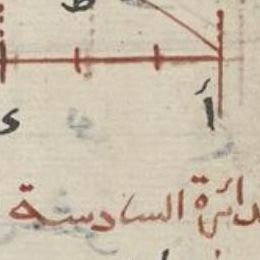 ط
أ
ء
دائرة السادسة